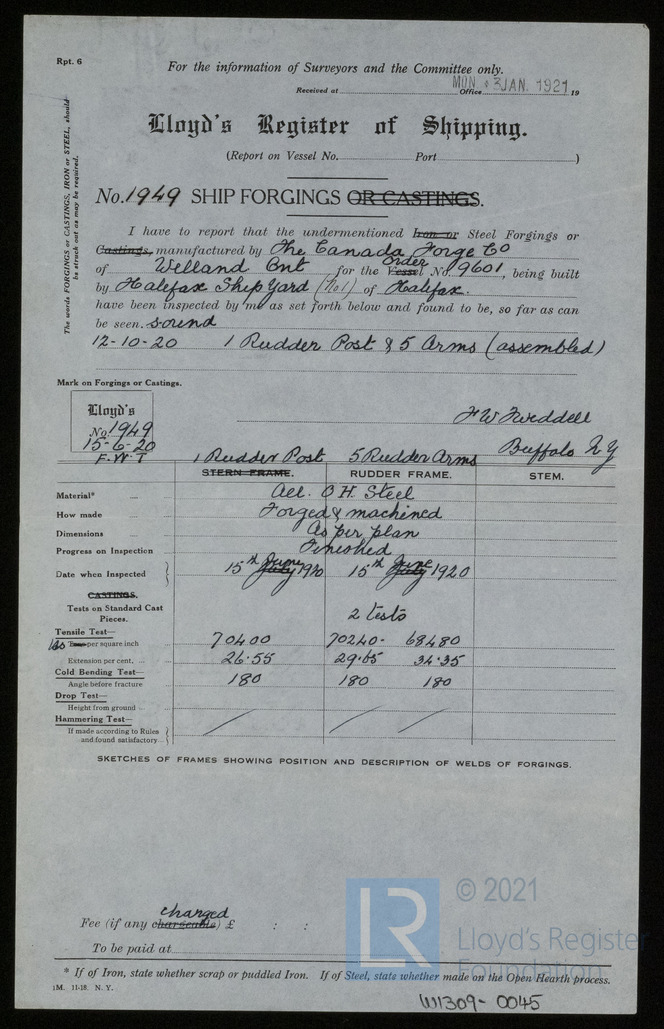 Rpt. 6
For the information of Surveyors and the Committee only.
Received at Office MON. 3 JAN. 1921 19
Lloyd's Register of Shipping.
(Report on Vessel No. Port )
No. 1949 SHIP FORGINGS OR CASTINGS.
The words FORGINGS or CASTINGS, IRON or STEEL, should
be struck out as may be required.
I have to report that the undermentioned Iron or Steel Forgings or
Castings, manufactured by The Canada Forge Co
of Welland Ont for the Vessel Order No. 9601, being built
by Halifax Ship Yard (No1) of Halifax.
have been inspected by me as set forth below and found to be, so far as can
be seen. sound
12-10-20 1 Rudder Post & 5 Arms (assembled)
Mark on Forgings or Castings.
Lloyd's
No. 1949
15-6-20
F.W.T
F W Tweddell
Buffalo N Y
1 Rudder Post 5 Rudder Arms
STERN FRAME. RUDDER FRAME. STEM.
Material* O H. Steel
How made Forged & machined
Dimensions As per plan
Progress on Inspection Finished
Date when Inspected 15th July June 1920 15th July June 1920
CASTINGS.
Tests on Standard Cast
Pieces. 2 tests
Tensile Test—
lbs Tons per square inch 70400 70240- 68480
Extension per cent. 26.55 29.65 34.35
Cold Bending Test—
Angle before fracture 180 180 180
Drop Test—
Height from ground
Hammering Test—
If made according to Rules
and found satisfactory
SKETCHES OF FRAMES SHOWING POSITION AND DESCRIPTION OF WELDS OF FORGINGS.
Fee (if any chargeable charged) £ : :
To be paid at
* If of Iron, state whether scrap or puddled Iron. If of Steel, state whether made on the Open Hearth process.
1M. 11-18. N. Y.
LR
© 2021
Lloyd's Register
Foundation
W1309-0045